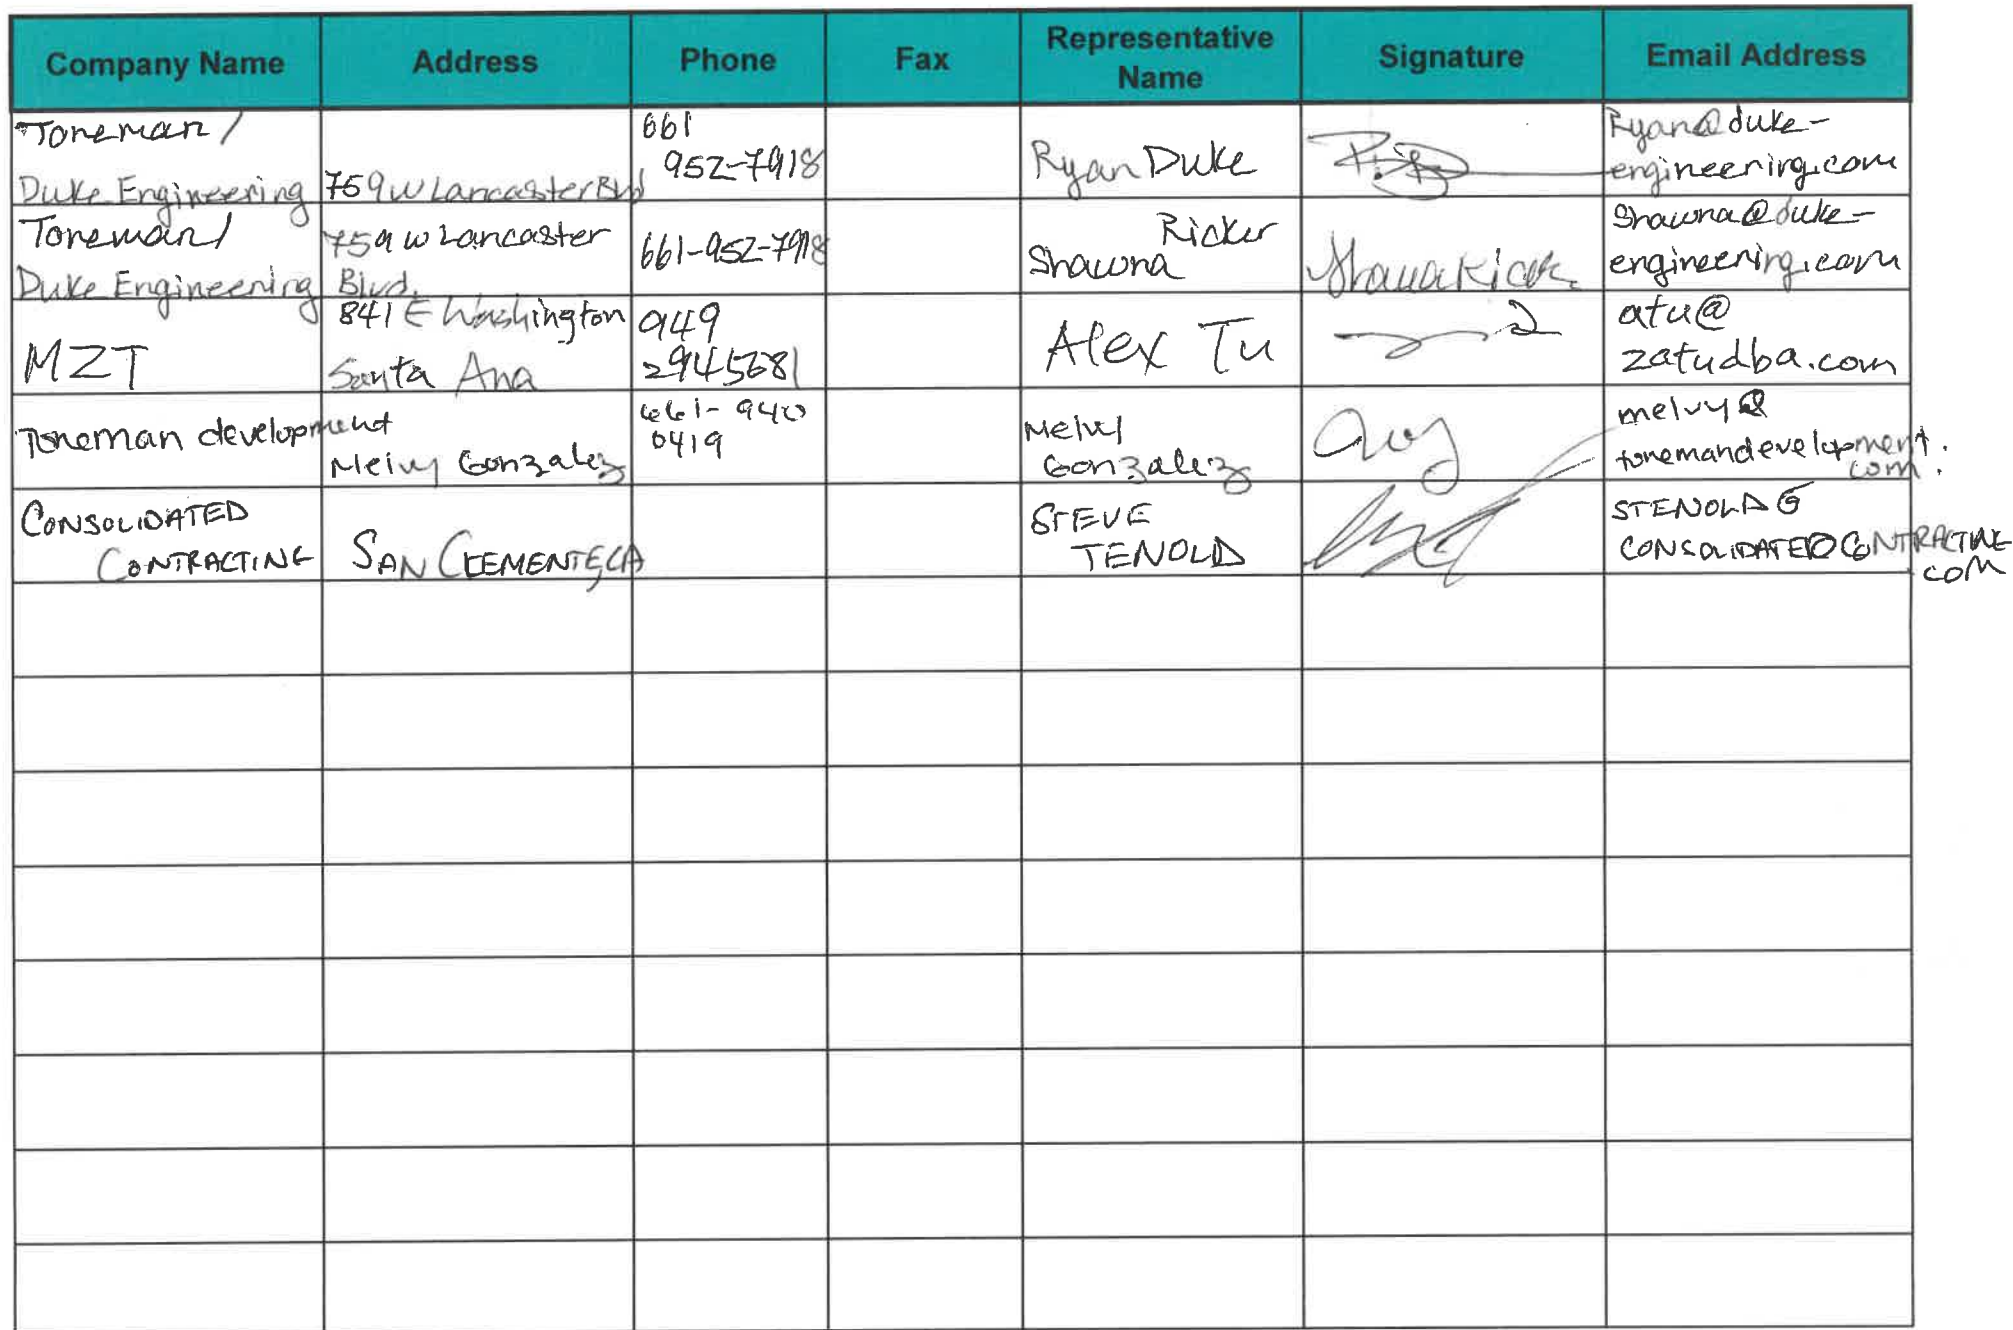 Company Name
Address
Phone
Fax
Representative
Name
Signature
Email Address
Toneman/
Duke Engineering
759 W Lancaster Blvd
661
952-7918
Ryan Duke
Ryan@duke-
engineering.com
Toneman/
Duke Engineering
759 W Lancaster
Blvd.
661-952-7918
Ricker
Shawna
Shawna@duke-
engineering.com
MZT
841 E Washington
Santa Ana
949
Alex Tu
atu@
zatudba.com
Toneman development
Melvy Gonzalez
661-940
0419
Melvy
Gonzalez
melvy@
tonemandevelopment.
com.
CONSOLIDATED
CONTRACTING
SAN CLEMENTE, CA
STEVE
TENOLD
STENOLD@
CONSOLIDATEDCONTRACTING
COM